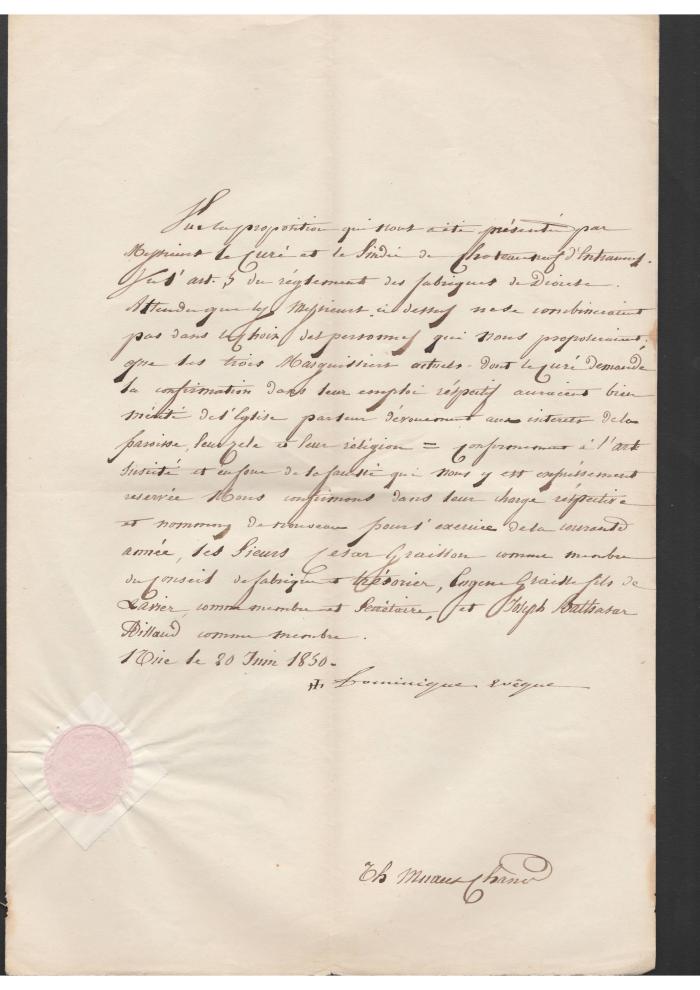 Vu la proposition qui nous a été présenté par
Messieurs le Curé et le Sindic de Chateauneuf d'Entraunes.
Vu l'art. 5 du réglement des fabriques de Diocèse
Attendu que les Messieurs ci dessus ne se combineraient
pas dans le choix des personnes qui nous proposeraient,
que les trois Marguilliers actuels dont le Curé demande
la confirmation dans leur emploi réspéctif auraient bien
mérité de l'Eglise par leur dévouement aux interets de la
paroisse, leur zele et leur réligion = Conformement à l'art.
susdité et en force de la faculté qui nous y est expréssement
reservée Nous confirmons dans leur charge réspéctive
et nommons de nouveau pour l'exercice de la courante
année, les Sieurs Cesar Graisson comme membre
du Conseil de fabrique et trésorier, Eugene fils de
Xavier, comme membre et Secrétaire, et Joseph Balthasar
comme membre.
Nice le 20 Juin 1850.
Dominique évêque
Th